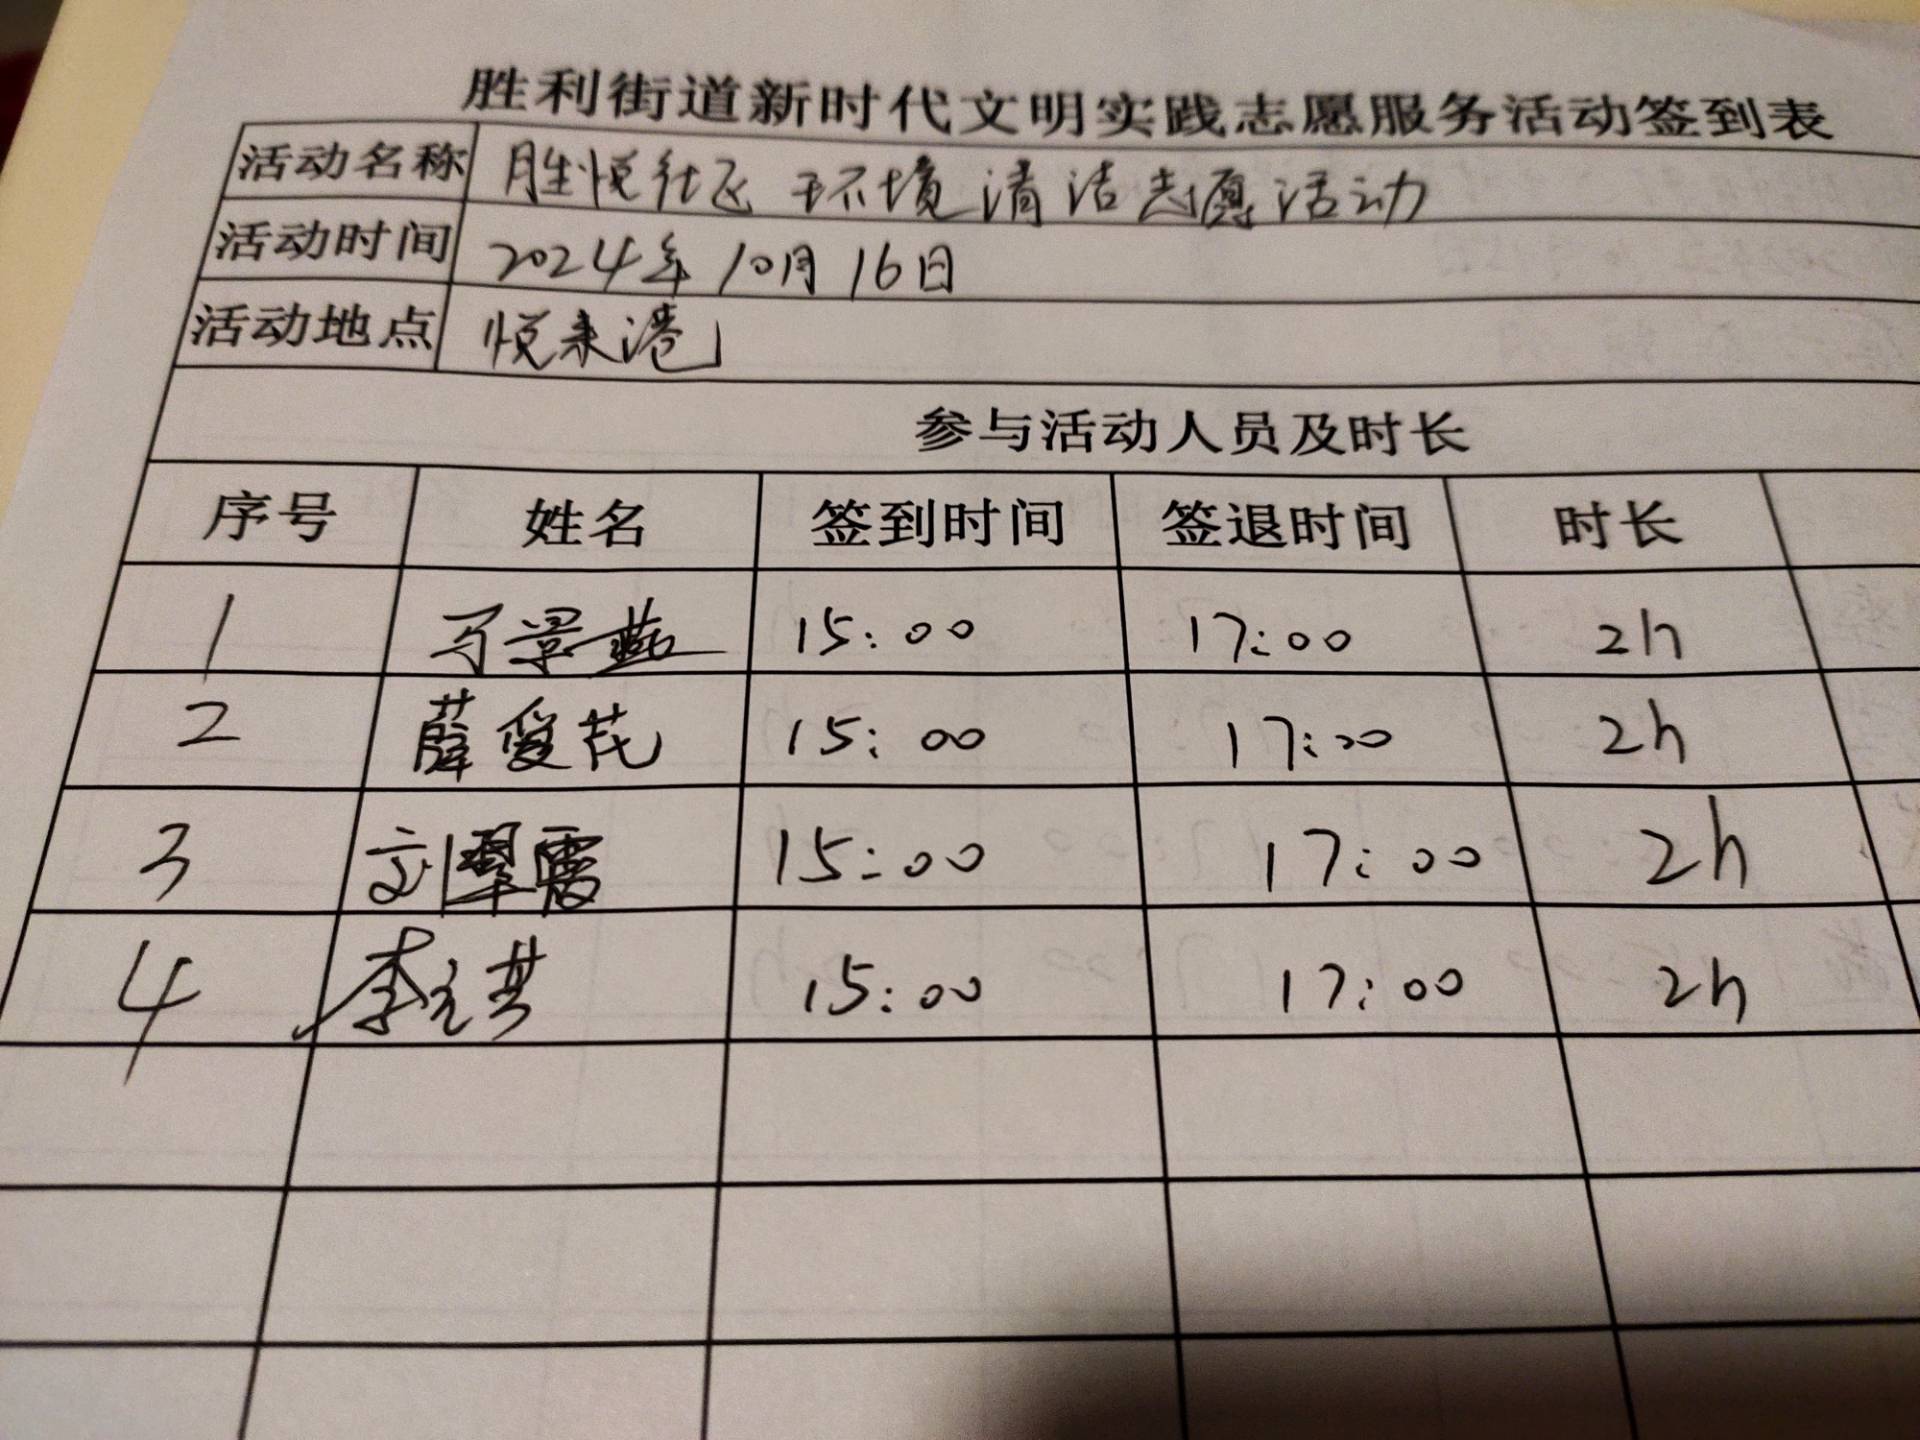 胜利街道新时代文明实践志愿服务活动签到表
活动名称 胜悦社区环境清洁志愿活动
活动时间 2024年10月16日
活动地点 悦来港
参与活动人员及时长
序号 姓名 签到时间 签退时间 时长
1 15:00 17:00 2h
2 薛爱花 15:00 17:00 2h
3 刘翠霞 15:00 17:00 2h
4 李 15:00 17:00 2h